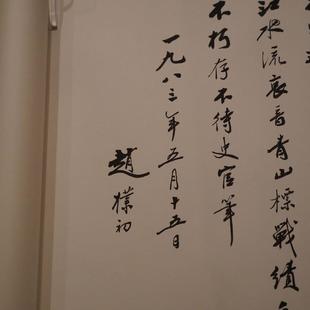 江水流哀音青山標戰績
不朽存不待史官筆
一九八三年五月十五日
趙樸初